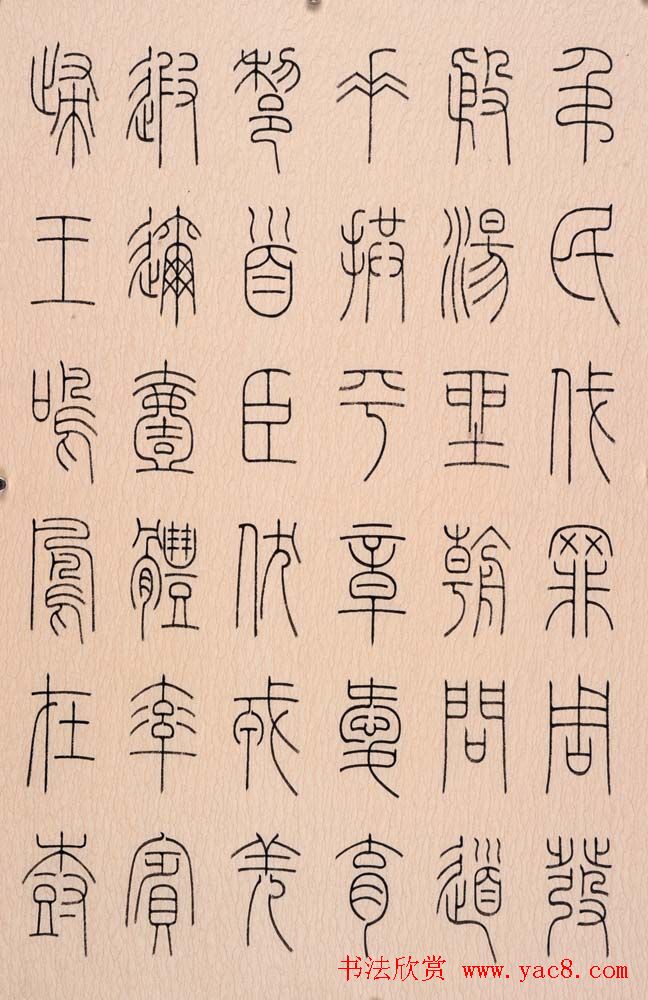 弔民伐罪周發
殷湯坐朝問道
垂拱平章愛育
黎首臣伏戎羌
遐邇壹體率賓
歸王鳴鳳在樹
书法欣赏 www.yac8.com